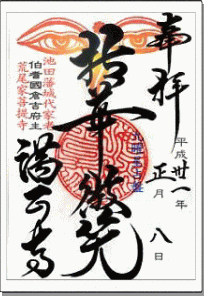 奉拝
平成卅一年
正月
八日
拈華微笑
池田藩城代家老
伯耆國倉吉府主
荒尾家菩提寺
満正寺